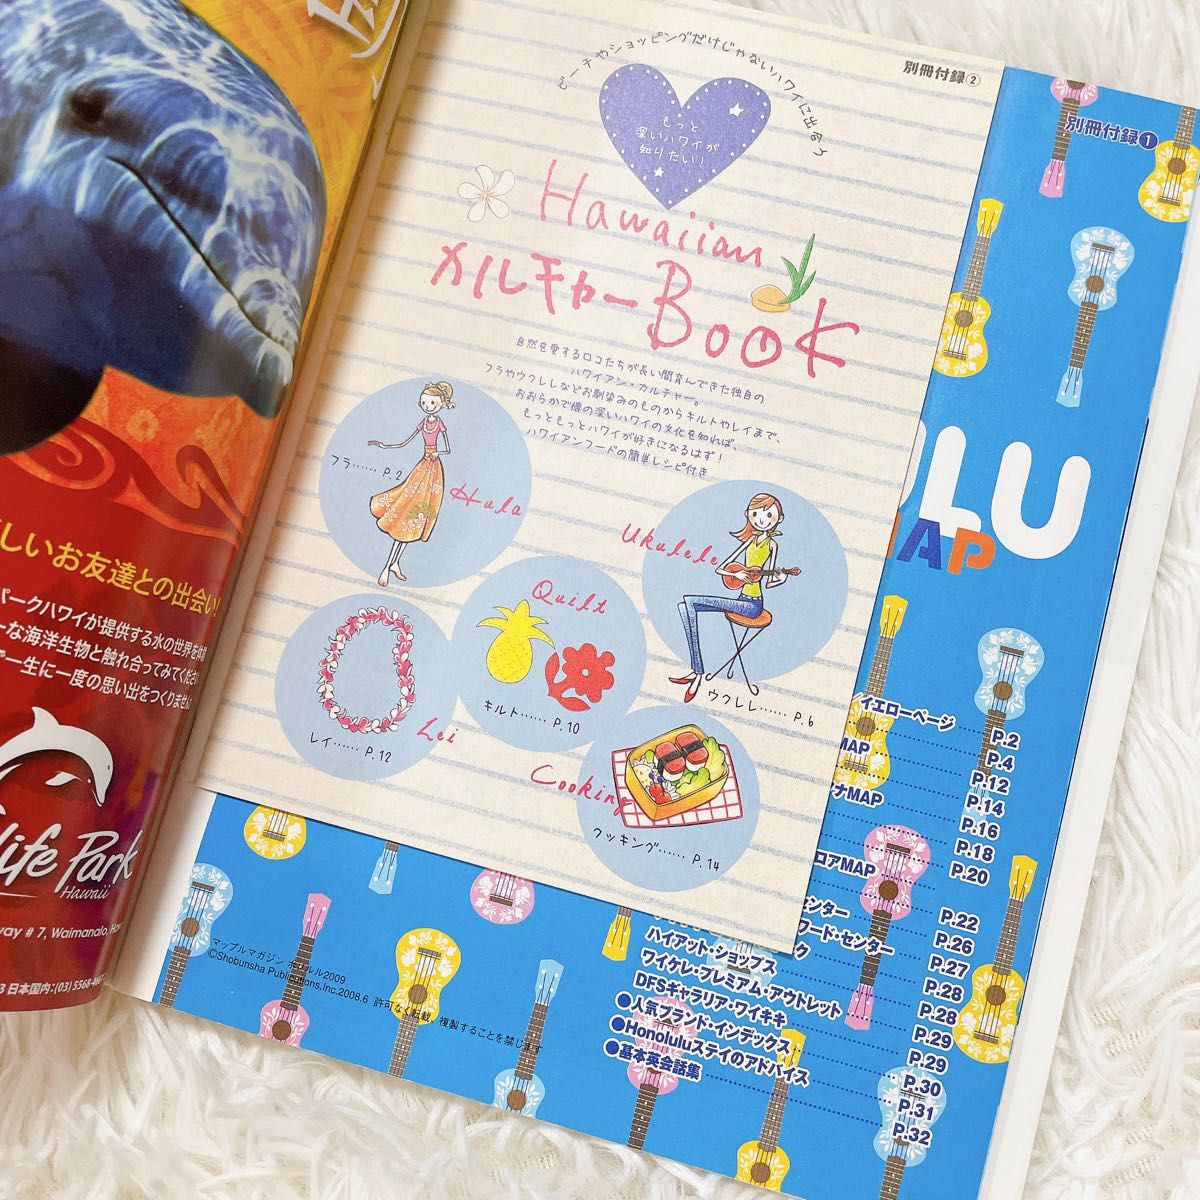 別冊付録②
ビーチやショッピングだけじゃないハワイに出会う
もっと
深いハワイが
知りたい!
Hawaiian
カルチャーBook
自然を愛するロコたちが長い間育んできた独自の
ハワイアン・カルチャー。
フラやウクレレなどお馴染みのものからキルトやレイまで、
おおらかで懐の深いハワイの文化を知れば、
もっともっとハワイが好きになるはず!
ハワイアンフードの簡単レシピ付き
フラ……P.2
Hula
Ukulele
ウクレレ……P.6
Quilt
キルト……P.10
Lei
レイ……P.12
Cooking
クッキング……P.14
別冊付録①
OLU
MAP
イエローページ
P.2
MAP
P.4
P.12
ナMAP
P.14
P.16
P.18
ロアMAP
P.20
ンター
P.22
フード・センター
P.26
ク
P.27
ハイアット・ショップス
P.28
ワイケレ・プレミアム・アウトレット
P.28
DFSギャラリア・ワイキキ
P.29
●人気ブランド・インデックス
P.29
●Honoluluステイのアドバイス
P.30
P.31
●基本英会話集
P.32
マップルマガジン ホノルル2009
©Shobunsha Publications,Inc.2008.6 許可なく転載、複製することを禁じます
しいお友達との出会い!
パークハワイが提供する水の世界を体
ーな海洋生物と触れ合ってみてください
で一生に一度の思い出をつくりません
life Park
Hawaii
way # 7, Waimanalo,
日本国内:(03)